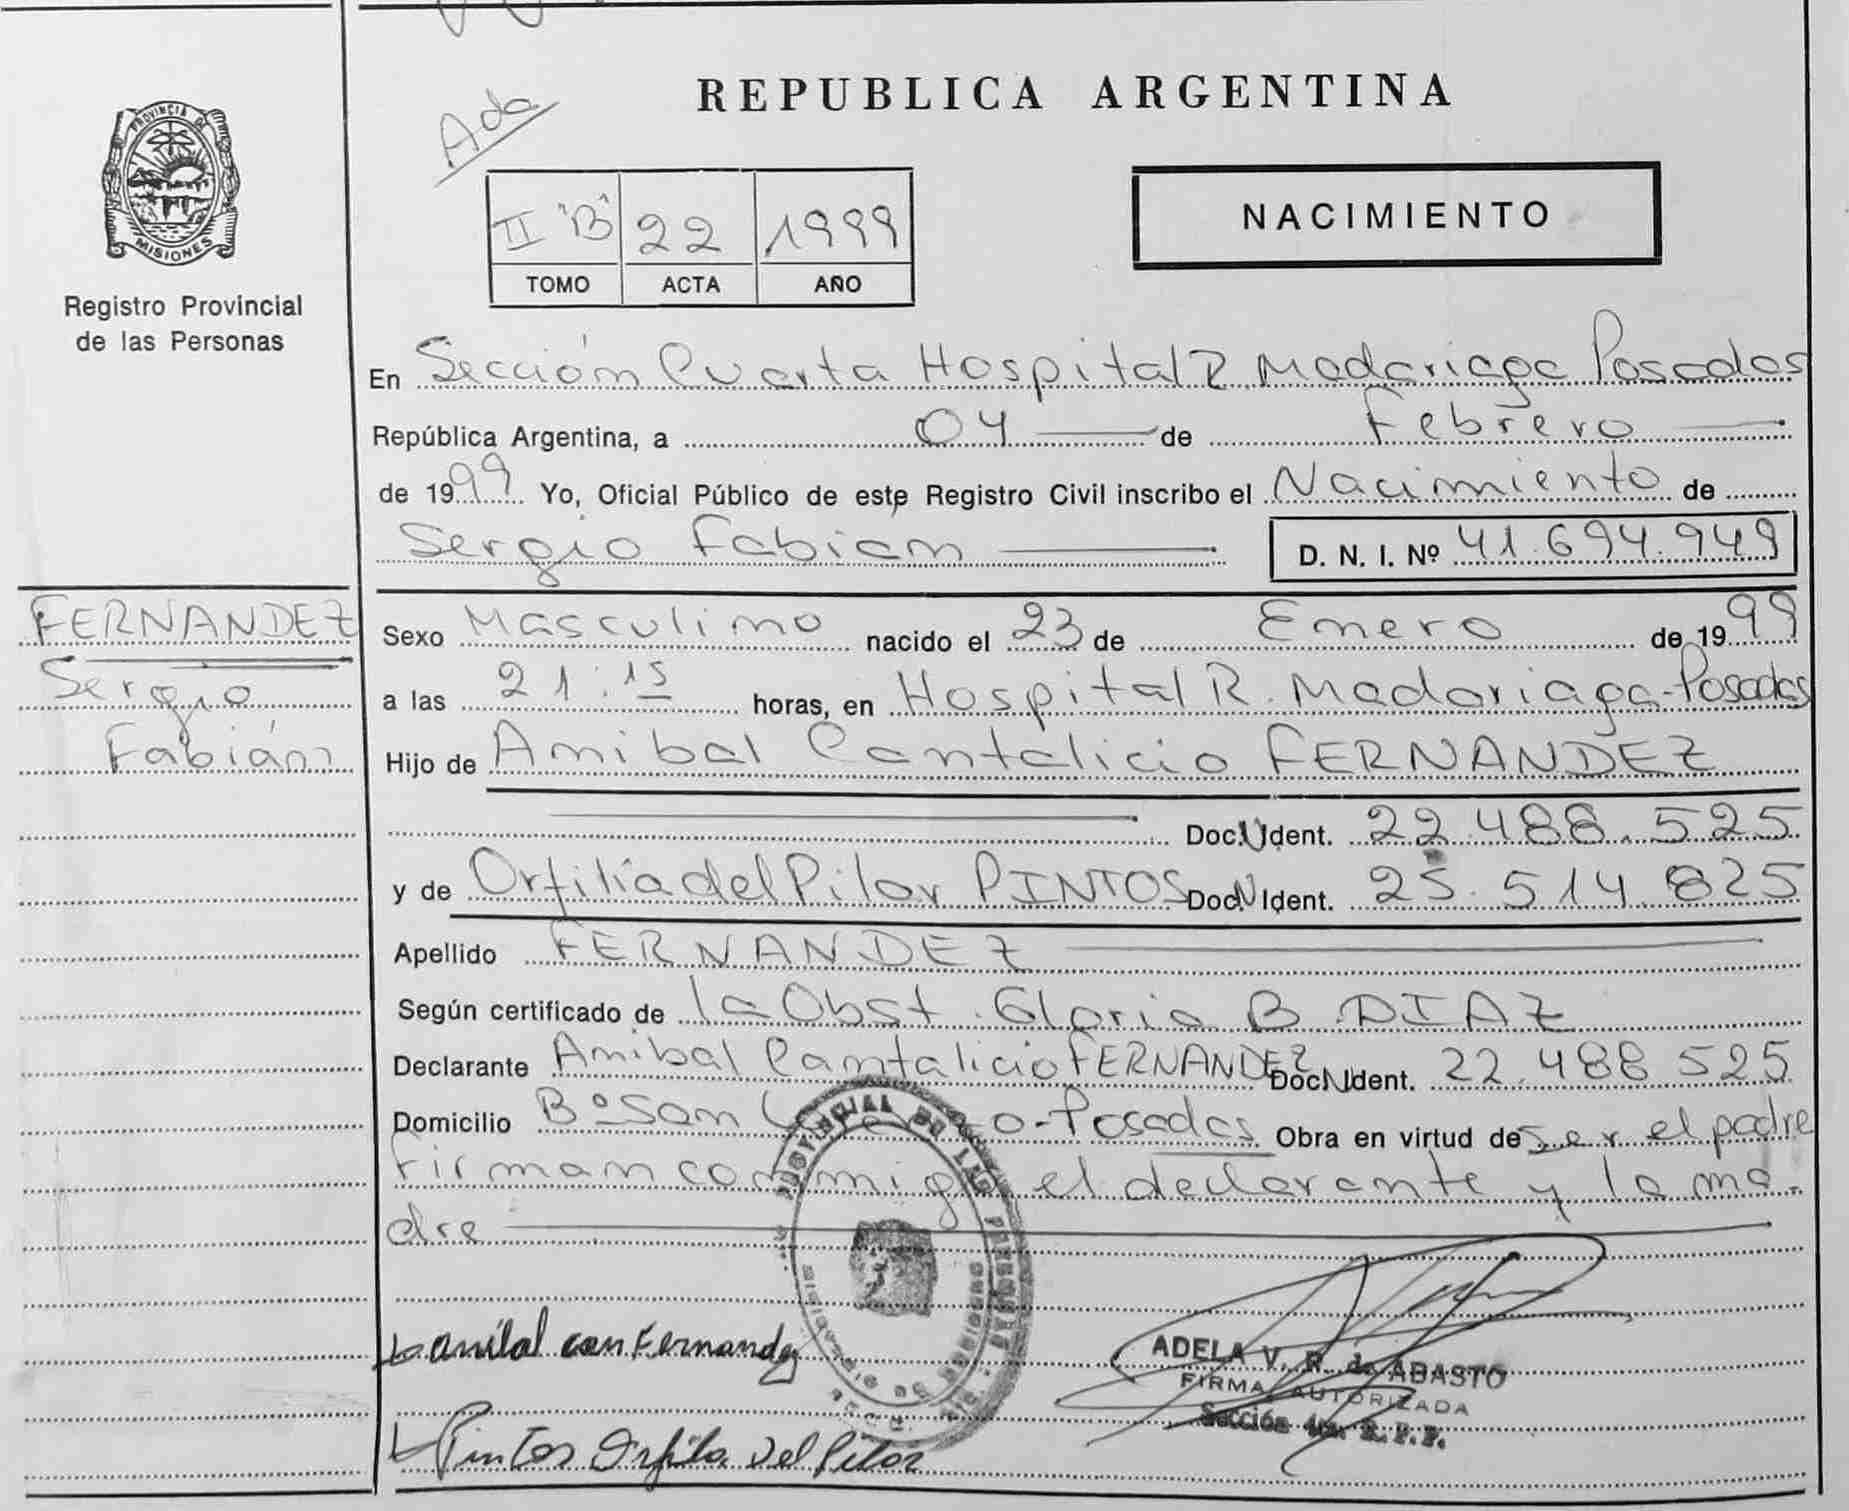 Ada
REPUBLICA ARGENTINA
PROVINCIA DE MISIONES
Registro Provincial
de las Personas
II "B" 22 1999
TOMO ACTA AÑO
NACIMIENTO
En Sección Cuarta Hospital R Madariaga Posadas
República Argentina, a 04 de Febrero
de 1999 Yo, Oficial Público de este Registro Civil inscribo el Nacimiento de
Sergio Fabian D. N. I. Nº 41.694.949
FERNANDEZ
Sergio
Fabián
Sexo Masculino nacido el 23 de Enero de 1999
a las 21:15 horas, en Hospital R. Madariaga-Posadas
Hijo de Anibal Cantalicio FERNANDEZ
Doc. Ident. 22.488.525
y de Orfilia del Pilar PINTOS Doc. N Ident. 25.514.825
Apellido FERNANDEZ
Según certificado de la Obst. Gloria B. DIAZ
Declarante Anibal Cantalicio FERNANDEZ Doc. N Ident. 22.488.525
Domicilio Bº San o-Posadas Obra en virtud de ser el padre
Firman conmigo el declarante y la ma-
dre
anibal can Fernandez
ADELA V. R. de ABASTO
FIRMA AUTORIZADA
Sección 4ta. R.P.P.
Pintos Orfila Del Pilar